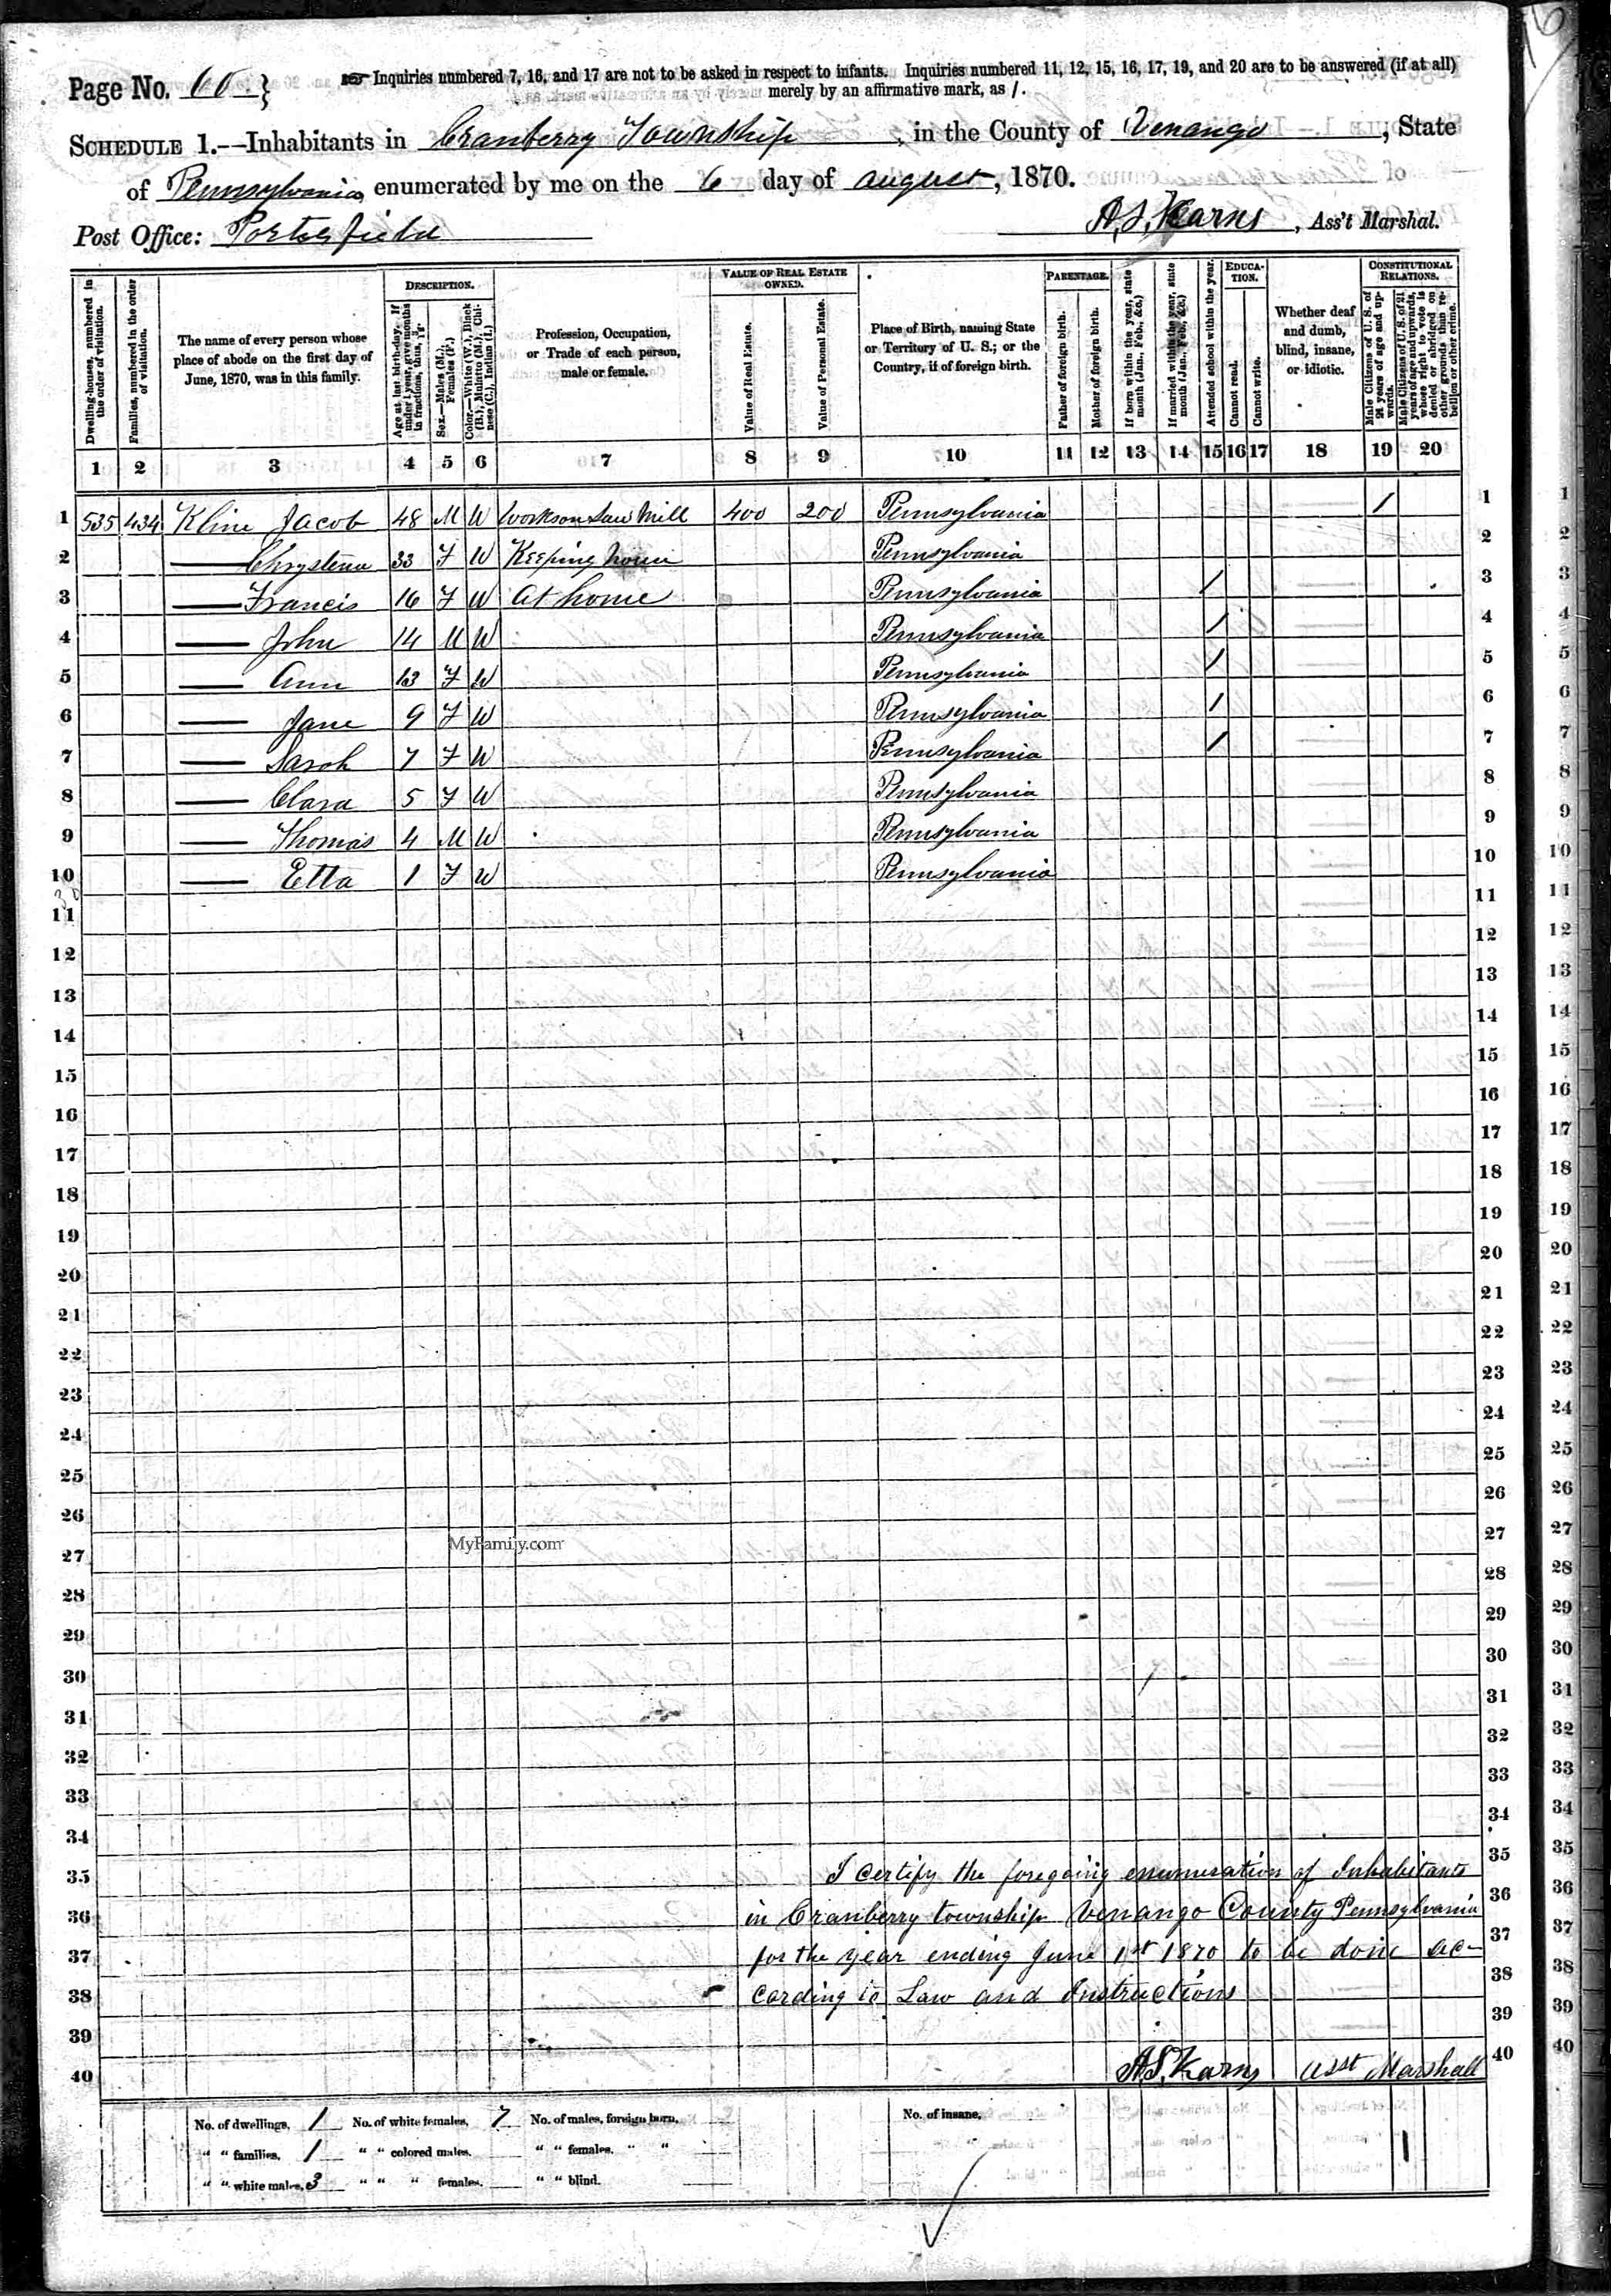 Page No. 60 } Inquiries numbered 7, 16, and 17 are not to be asked in respect to infants. Inquiries numbered 11, 12, 15, 16, 17, 19, and 20 are to be answered (if at all)
merely by an affirmative mark, as /.
SCHEDULE 1.—Inhabitants in Cranberry Township, in the County of Venango, State
of Pennsylvania enumerated by me on the 6 day of august, 1870.
Post Office: Porterfield
A. S. Karns, Ass't Marshal.
Dwelling-houses, numbered in the order of visitation.
Families, numbered in the order of visitation.
The name of every person whose place of abode on the first day of June, 1870, was in this family.
DESCRIPTION.
Age at last birth-day. If under 1 year, give months in fractions, thus,
Sex.—Males (M.), Females (F.)
Color.—White (W.), Black (B.), Mulatto (M.), Chinese (C.), Indian (I.)
Profession, Occupation, or Trade of each person, male or female.
VALUE OF REAL ESTATE OWNED.
Value of Real Estate.
Value of Personal Estate.
Place of Birth, naming State or Territory of U. S.; or the Country, if of foreign birth.
PARENTAGE.
Father of foreign birth.
Mother of foreign birth.
If born within the year, state month (Jan., Feb., &c.)
If married within the year, state month (Jan., Feb., &c.)
Attended school within the year.
EDUCATION.
Cannot read.
Cannot write.
Whether deaf and dumb, blind, insane, or idiotic.
CONSTITUTIONAL RELATIONS.
Male Citizens of U. S. of 21 years of age and upwards.
Male Citizens of U. S. of 21 years of age and upwards, whose right to vote is denied or abridged on other grounds than rebellion or other crime.
1 2 3 4 5 6 7 8 9 10 11 12 13 14 15 16 17 18 19 20
1 535 434 Kline Jacob 48 M W Works on Saw Mill 400 200 Pennsylvania / 1
2 — Chrystena 33 F W Keeping house Pennsylvania 2
3 — Francis 16 F W At home Pennsylvania / 3
4 — John 14 M W Pennsylvania / 4
5 — Ann 13 F W Pennsylvania / 5
6 — Jane 9 F W Pennsylvania / 6
7 — Sarah 7 F W Pennsylvania / 7
8 — Clara 5 F W Pennsylvania 8
9 — Thomas 4 M W Pennsylvania 9
10 — Etta 1 F W Pennsylvania 10
11 11
12 12
13 13
14 14
15 15
16 16
17 17
18 18
19 19
20 20
21 21
22 22
23 23
24 24
25 25
26 26
MyFamily.com
27 27
28 28
29 29
30 30
31 31
32 32
33 33
34 34
35 I certify the foregoing enumeration of Inhabitants 35
36 in Cranberry township Venango County Pennsylvania 36
37 for the year ending June 1st 1870 to be done ac- 37
38 cording to Law and Instructions 38
39 39
40 A. S. Karns Asst Marshall 40
No. of dwellings, 1 No. of white females, 7 No. of males, foreign born, No. of insane,
" " families, 1 " " colored males, " " females, " "
" " white males, 3 " " " females, " " blind.